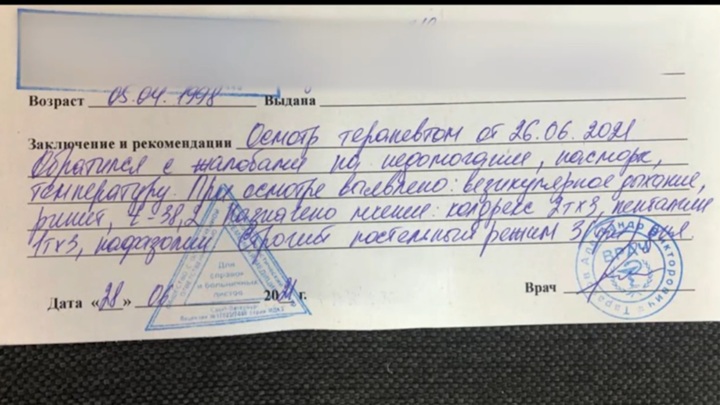 Возраст 05.04.1998 Выдана
Заключение и рекомендации Осмотр терапевтом от 26.06.2021
Обратился с жалобами на недомогание, насморк,
температуру. При осмотре выявлено: везикулярное дыхание,
ринит, t-38,2 Назначено лечение: колдрекс 2тх3, пенталгин
1тх3, нафазолин. Строгий постельный режим 3
Дата «28» 06 2021 г.
Врач
Для справок и больничных листов
Санкт-Петербург
ВРАЧ